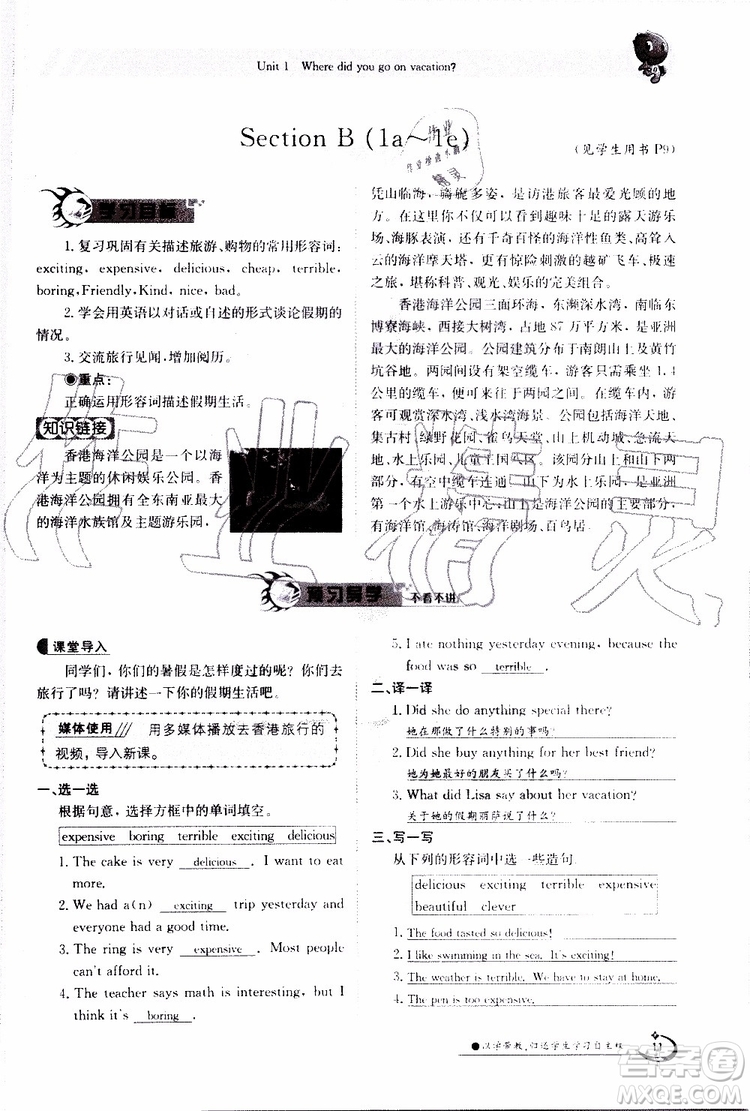 Unit 1 Where did you go on vacation?
Section B (1a～1e)
(见学生用书 P9)
学习目标
1. 复习巩固有关描述旅游、购物的常用形容词:
exciting, expensive, delicious, cheap, terrible,
boring, Friendly, Kind, nice, bad。
2. 学会用英语以对话或自述的形式谈论假期的
情况。
3. 交流旅行见闻,增加阅历。
◉重点:
正确运用形容词描述假期生活。
知识链接
香港海洋公园是一个以海
洋为主题的休闲娱乐公园。香
港海洋公园拥有全东南亚最大
的海洋水族馆及主题游乐园,
凭山临海,旖旎多姿,是访港旅客最爱光顾的地
方。在这里你不仅可以看到趣味十足的露天游乐
场、海豚表演,还有千奇百怪的海洋性鱼类、高耸入
云的海洋摩天塔,更有惊险刺激的越矿飞车、极速
之旅,堪称科普、观光、娱乐的完美组合。
香港海洋公园三面环海,东濒深水湾,南临东
博寮海峡,西接大树湾,占地 87 万平方米,是亚洲
最大的海洋公园。公园建筑分布于南朗山上及黄竹
坑谷地。园内设有架空缆车,乘客可乘坐共长 1.4
公里的缆车,俯瞰整个海洋公园。在缆车内,游客
可观赏南中国海、浅水湾海景。公园还有海洋天地、
集古村、绿野花园、雀鸟天堂、山上机动城、急流天
地、水上乐园、儿童王国等。山下还设有水上乐园
等设施,空中缆车连通山上山下。水上乐园是亚洲
第一个水上游乐中心;山上是海洋公园的主要部分,
有海洋馆、海涛馆、海洋剧场、百鸟居。
预习导学 不看不讲
课堂导入
同学们,你们的暑假是怎样度过的呢? 你们去
旅行了吗? 请讲述一下你的假期生活吧。
媒体使用/// 用多媒体播放去香港旅行的
视频,导入新课。
一、选一选
根据句意,选择方框中的单词填空。
expensive boring terrible exciting delicious
1. The cake is very delicious . I want to eat
more.
2. We had a(n) exciting trip yesterday and
everyone had a good time.
3. The ring is very expensive . Most people
can't afford it.
4. The teacher says math is interesting, but I
think it's boring .
5. I ate nothing yesterday evening, because the
food was so terrible .
二、译一译
1. Did she do anything special there?
她在那做了什么特别的事吗?
2. Did she buy anything for her best friend?
她为她最好的朋友买了什么吗?
3. What did Lisa say about her vacation?
关于她的假期丽萨说了什么?
三、写一写
从下列的形容词中选一些造句。
delicious exciting terrible expensive
beautiful clever
1. The food tasted so delicious!
2. I like swimming in the sea. It's exciting!
3. The weather is terrible. We have to stay at home.
4. The pen is too expensive.
以学带教,归还学生学习自主权
11
作业精灵
答案圈
MXQE.COM